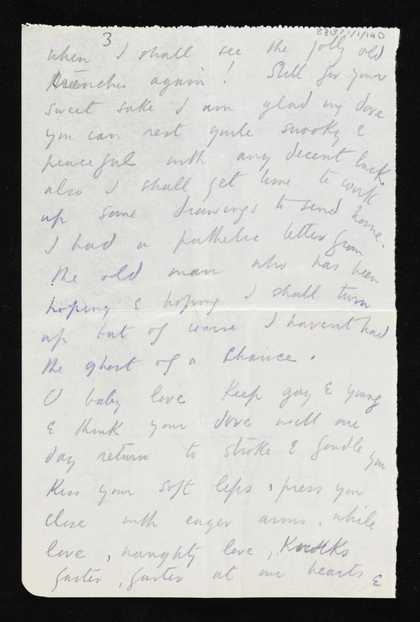 3
when I shall see the jolly old
trenches again! Still for your
sweet sake I am glad my dove
you can rest quite snooky &
peaceful with any decent luck
also I shall get time to work
up some drawings to send home.
I had a pathetic letter from
the old man who has been
hoping & hoping I shall turn
up but of course I havent had
the ghost of a chance.
O baby love keep gay & young
& think your dove will one
day return to stroke & fondle you
kiss your soft lips, press you
close with eager arms, while
love, naughty love, knocks
faster, faster at our hearts &